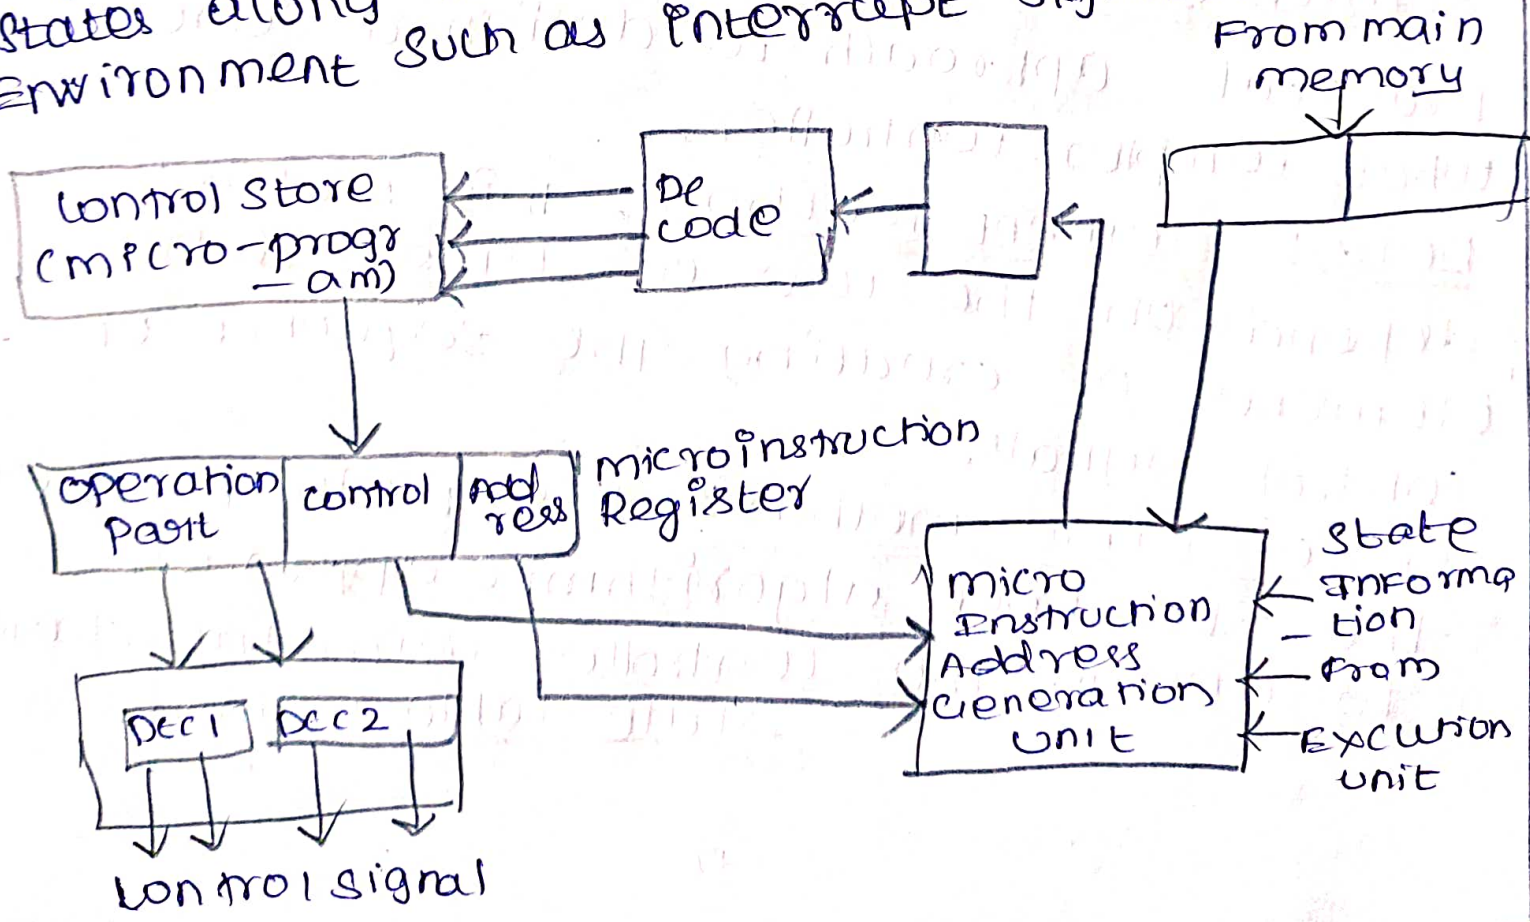 States along
Environment such as interrupt
From main
memory
Control Store
(micro-progr
-am)
De
code
operation
Part
control
Add
ress
microinstruction
Register
micro
Instruction
Address
Generation
unit
State
Informa
-tion
From
Excution
unit
DEC1
DEC2
Control signal